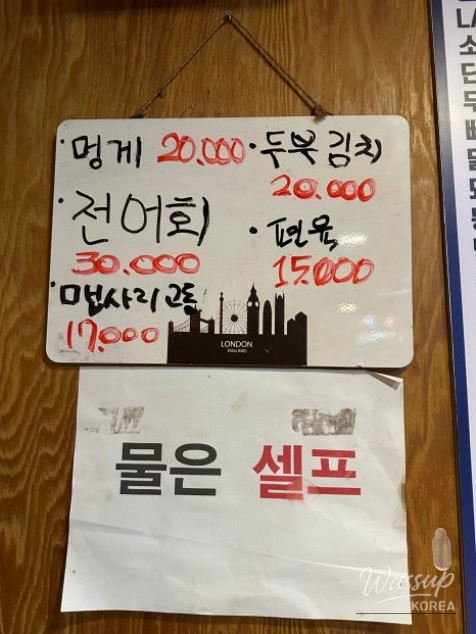 · 멍게 20.000
· 두부 김치
20.000
· 전어회
30.000
· 편육
15.000
· 매운사리곰
17.000
LONDON
ENGLAND
물은 셀프
Wassup
KOREA